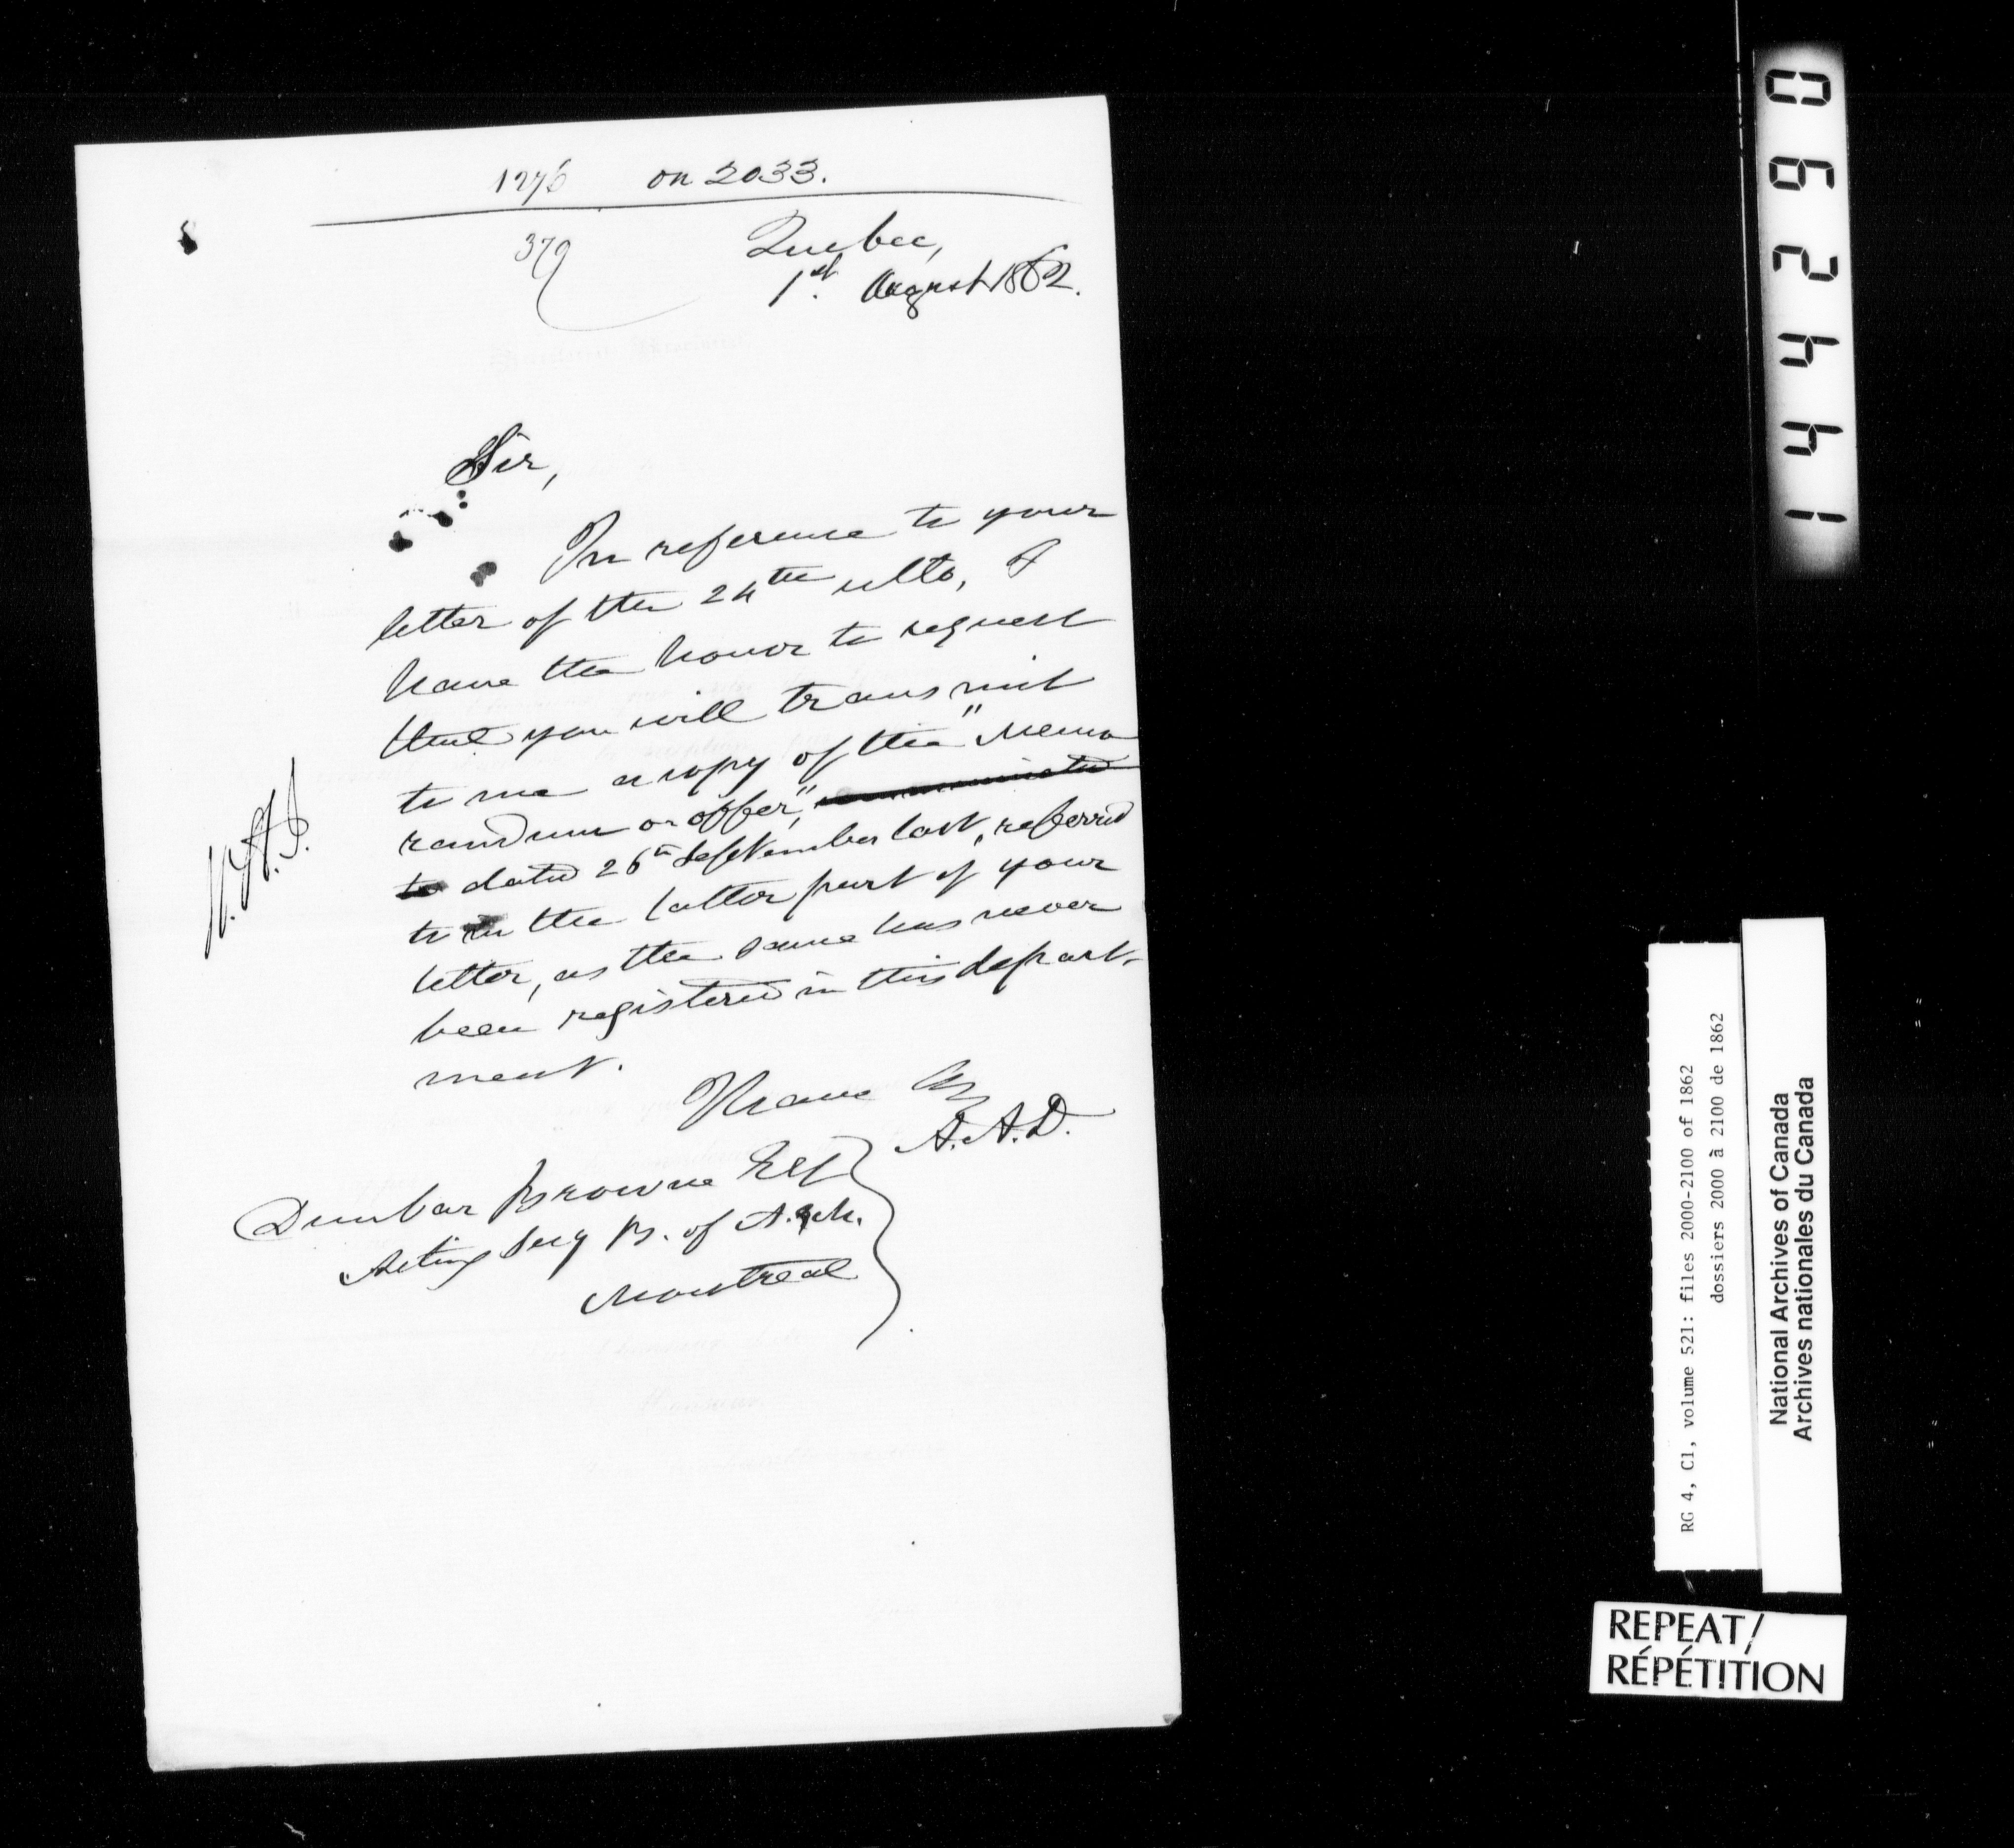 1276 on 2033.
379
Quebec,
1st. August 1862.
Sir,
In reference to your
letter of the 24th ulto, I
have the honor to request
that you will transmit
to me a copy of the "Memo
randum or offer,"
to dated 26th September last, referred
to in the latter part of your
letter, as the same has never
been registered in this depart-
ment.
I have &c
A.A.D.
Dunbar Browne Esq
Acting Secy B. of A. & M.
Montreal
RG 4, C1, volume 521: files 2000-2100 of 1862
dossiers 2000 à 2100 de 1862
National Archives of Canada
Archives nationales du Canada
REPEAT/
RÉPÉTITION
144290